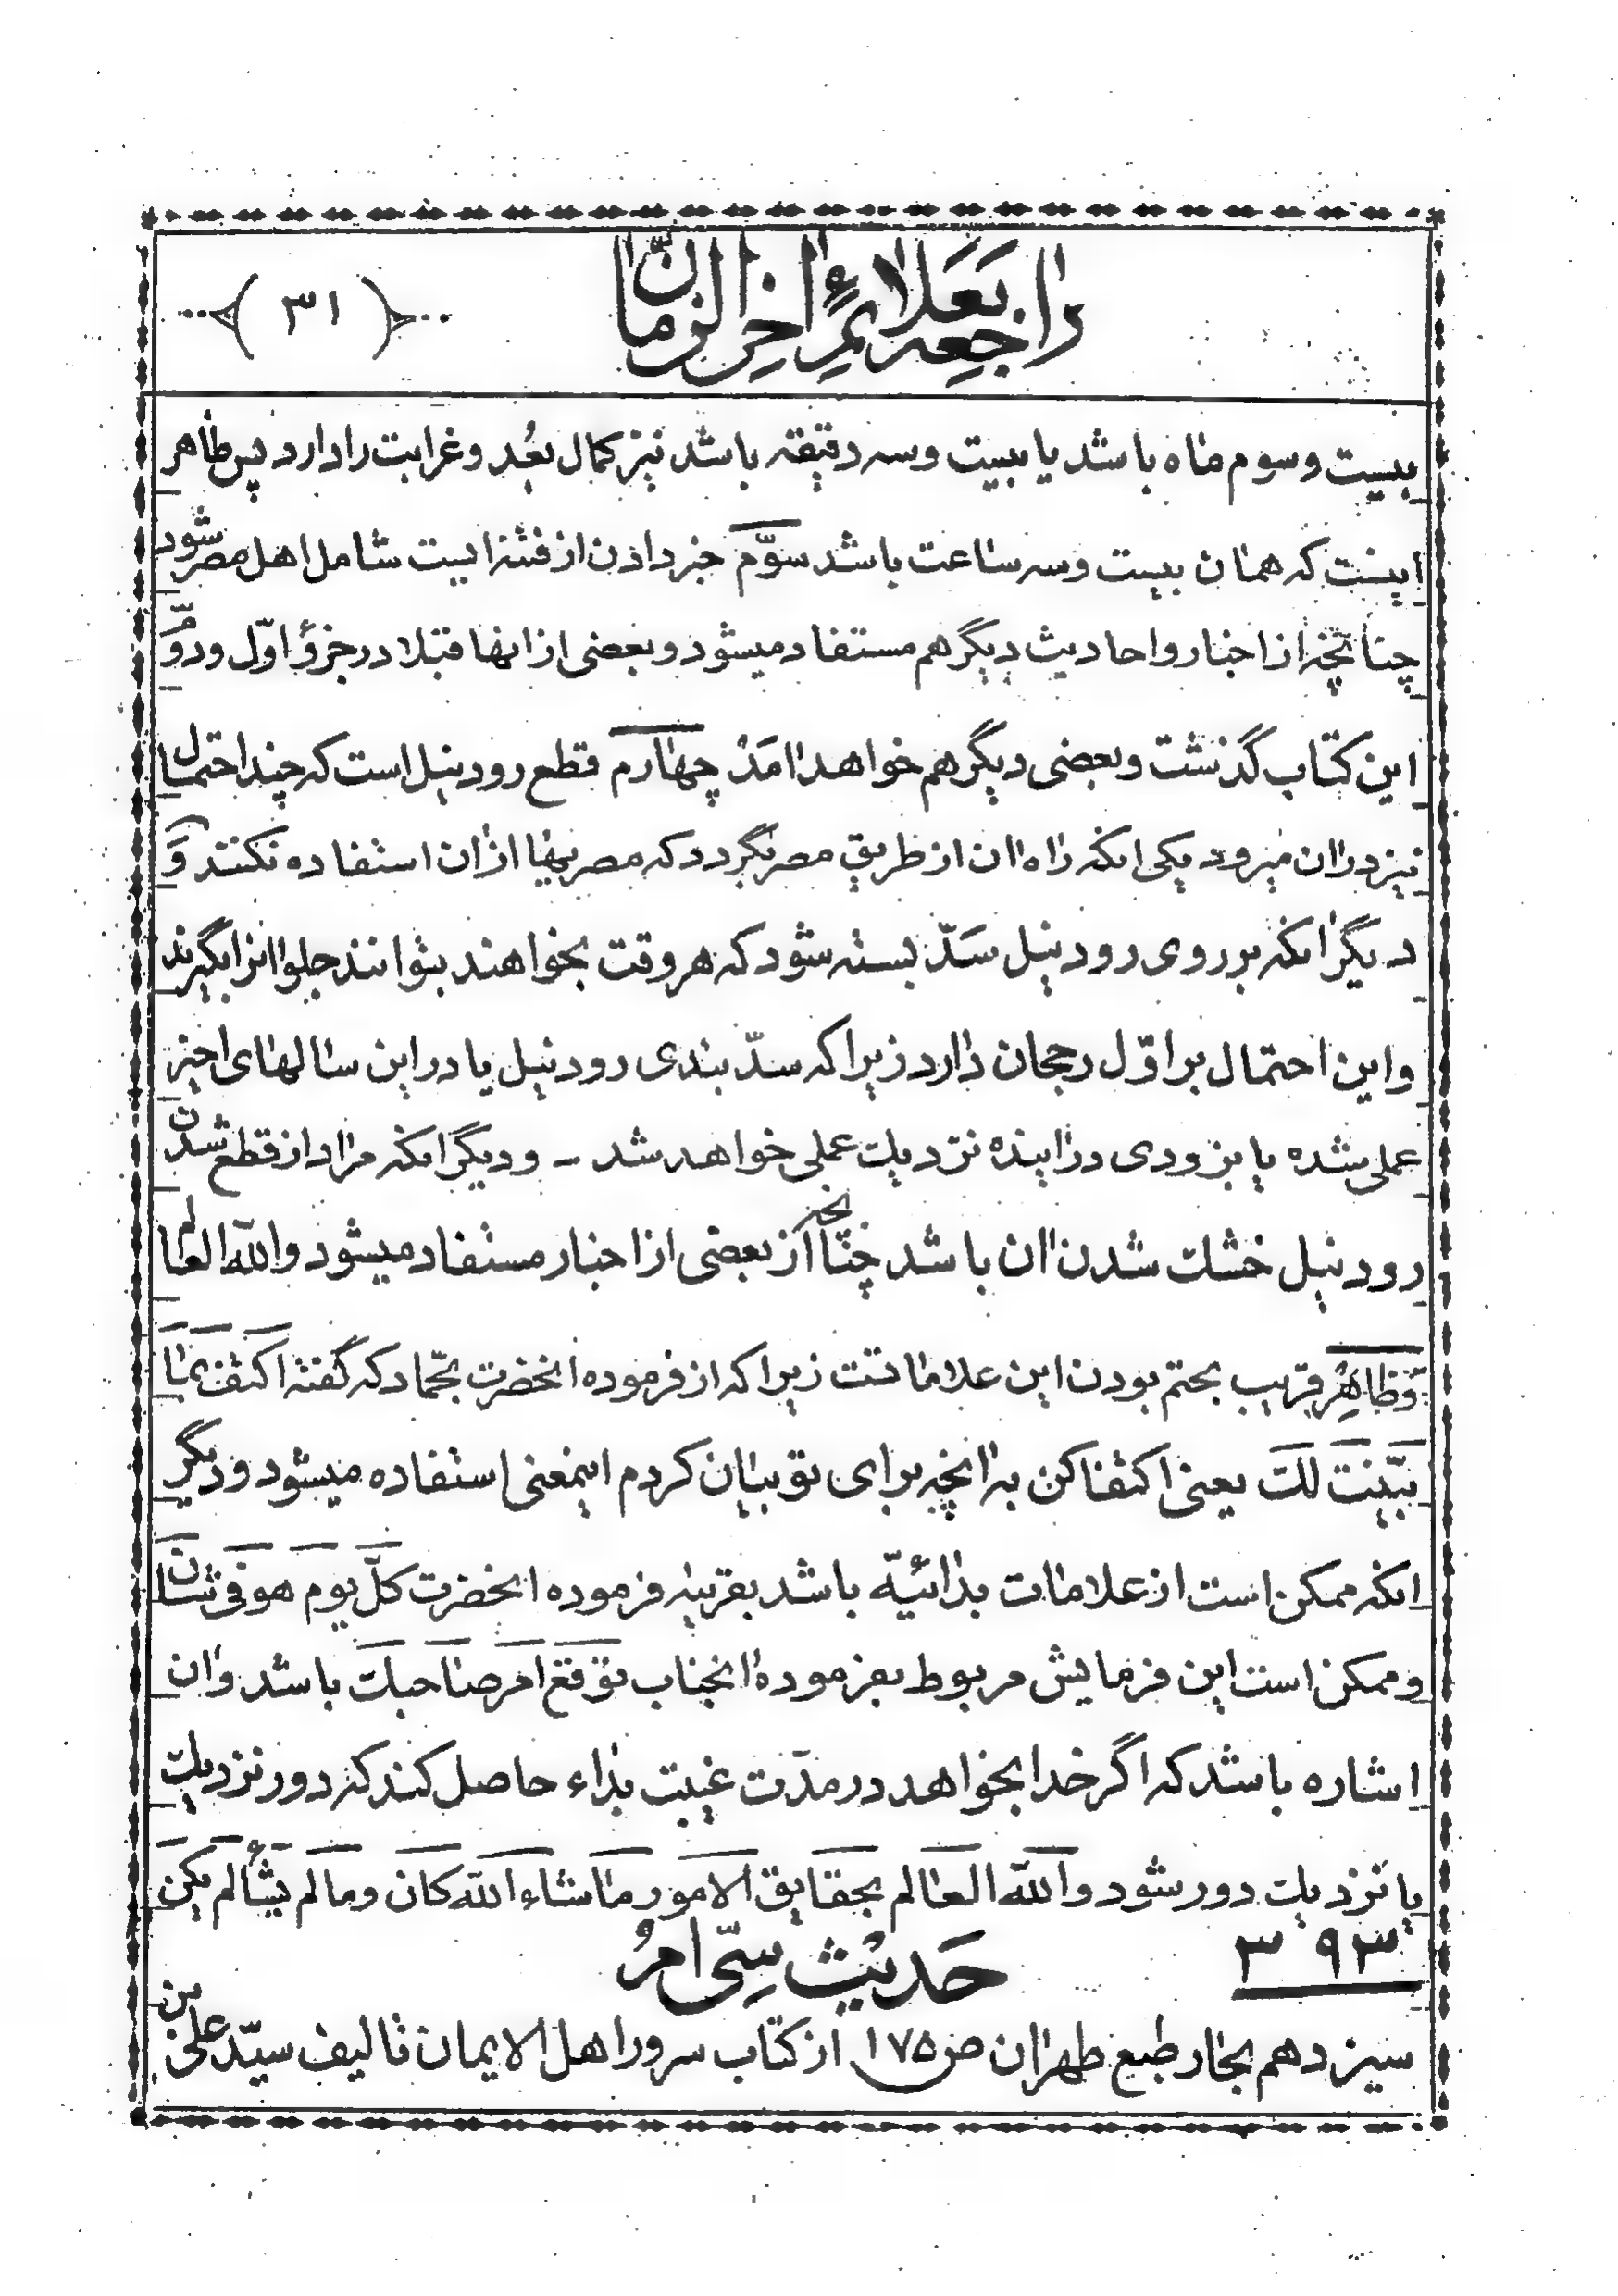 راجعه بعلائم اخر الزمان
(۳۱)
بیست و سوم ماه باشد یا بیست و سه دقیقه باشد نیز کمال بُعد و غرابت را دارد پس ظاهر
اینست که همان بیست و سه ساعت باشد سوّم خبر دادن از فتنه ایست شامل اهل مصر شود
چنانچه از اخبار و احادیث دیگر هم مستفاد میشود و بعضی از انها قبلا در جزؤ اوّل و دوّم
این کتاب گذشت و بعضی دیگر هم خواهد امَد چهارم قطع رود نیل است که چند احتمال
نیز در ان میرود یکی انکه راه ان از طریق مصر بگردد که مصریها از ان استفاده نکنند وَ
دیگر انکه بر روی رود نیل سَدّ بسته شود که هر وقت بخواهند بتوانند جلو انرا بگیرند
و این احتمال بر اوّل رجحان دارد زیرا که سدّ بندی رود نیل یا در این سالهای اخیر
عملی شده یا بزودی در اینده نزدیک عملی خواهد شد - و دیگر انکه مراد از قطع شدن
رود نیل خشک شدن ان باشد چنانچه از بعضی از اخبار مستفاد میشود والله العالم
وَظاهِر قریب بحتم بودن این علاماتست زیرا که از فرموده انحضرت بحّماد که گفته اکتف بما
بیّنت لک یعنی اکتفا کن به انچه برای تو بیان کردم اینمعنی استفاده میشود و دیگر
انکه ممکن است از علامات بدائیّه باشد بقرینه فرموده انحضرت کلّ یوم هو فی شان
و ممکن است این فرمایش مربوط بفرموده انجناب توقع امر صاحبک باشد و ان
اشاره باشد که اگر خدا بخواهد در مدّت غیبت بداء حاصل کند که دور نزدیک
یا نزدیک دور شود والله العالم بحقایق الامور ما شاء الله کان و مالم یشأ لم یکن
۳۹۳ حَدیث سِیّ امُ
سیزدهم بحار طبع طهران ص ۱۷۵ از کتاب سرور اهل الایمان تالیف سیّد علی بن